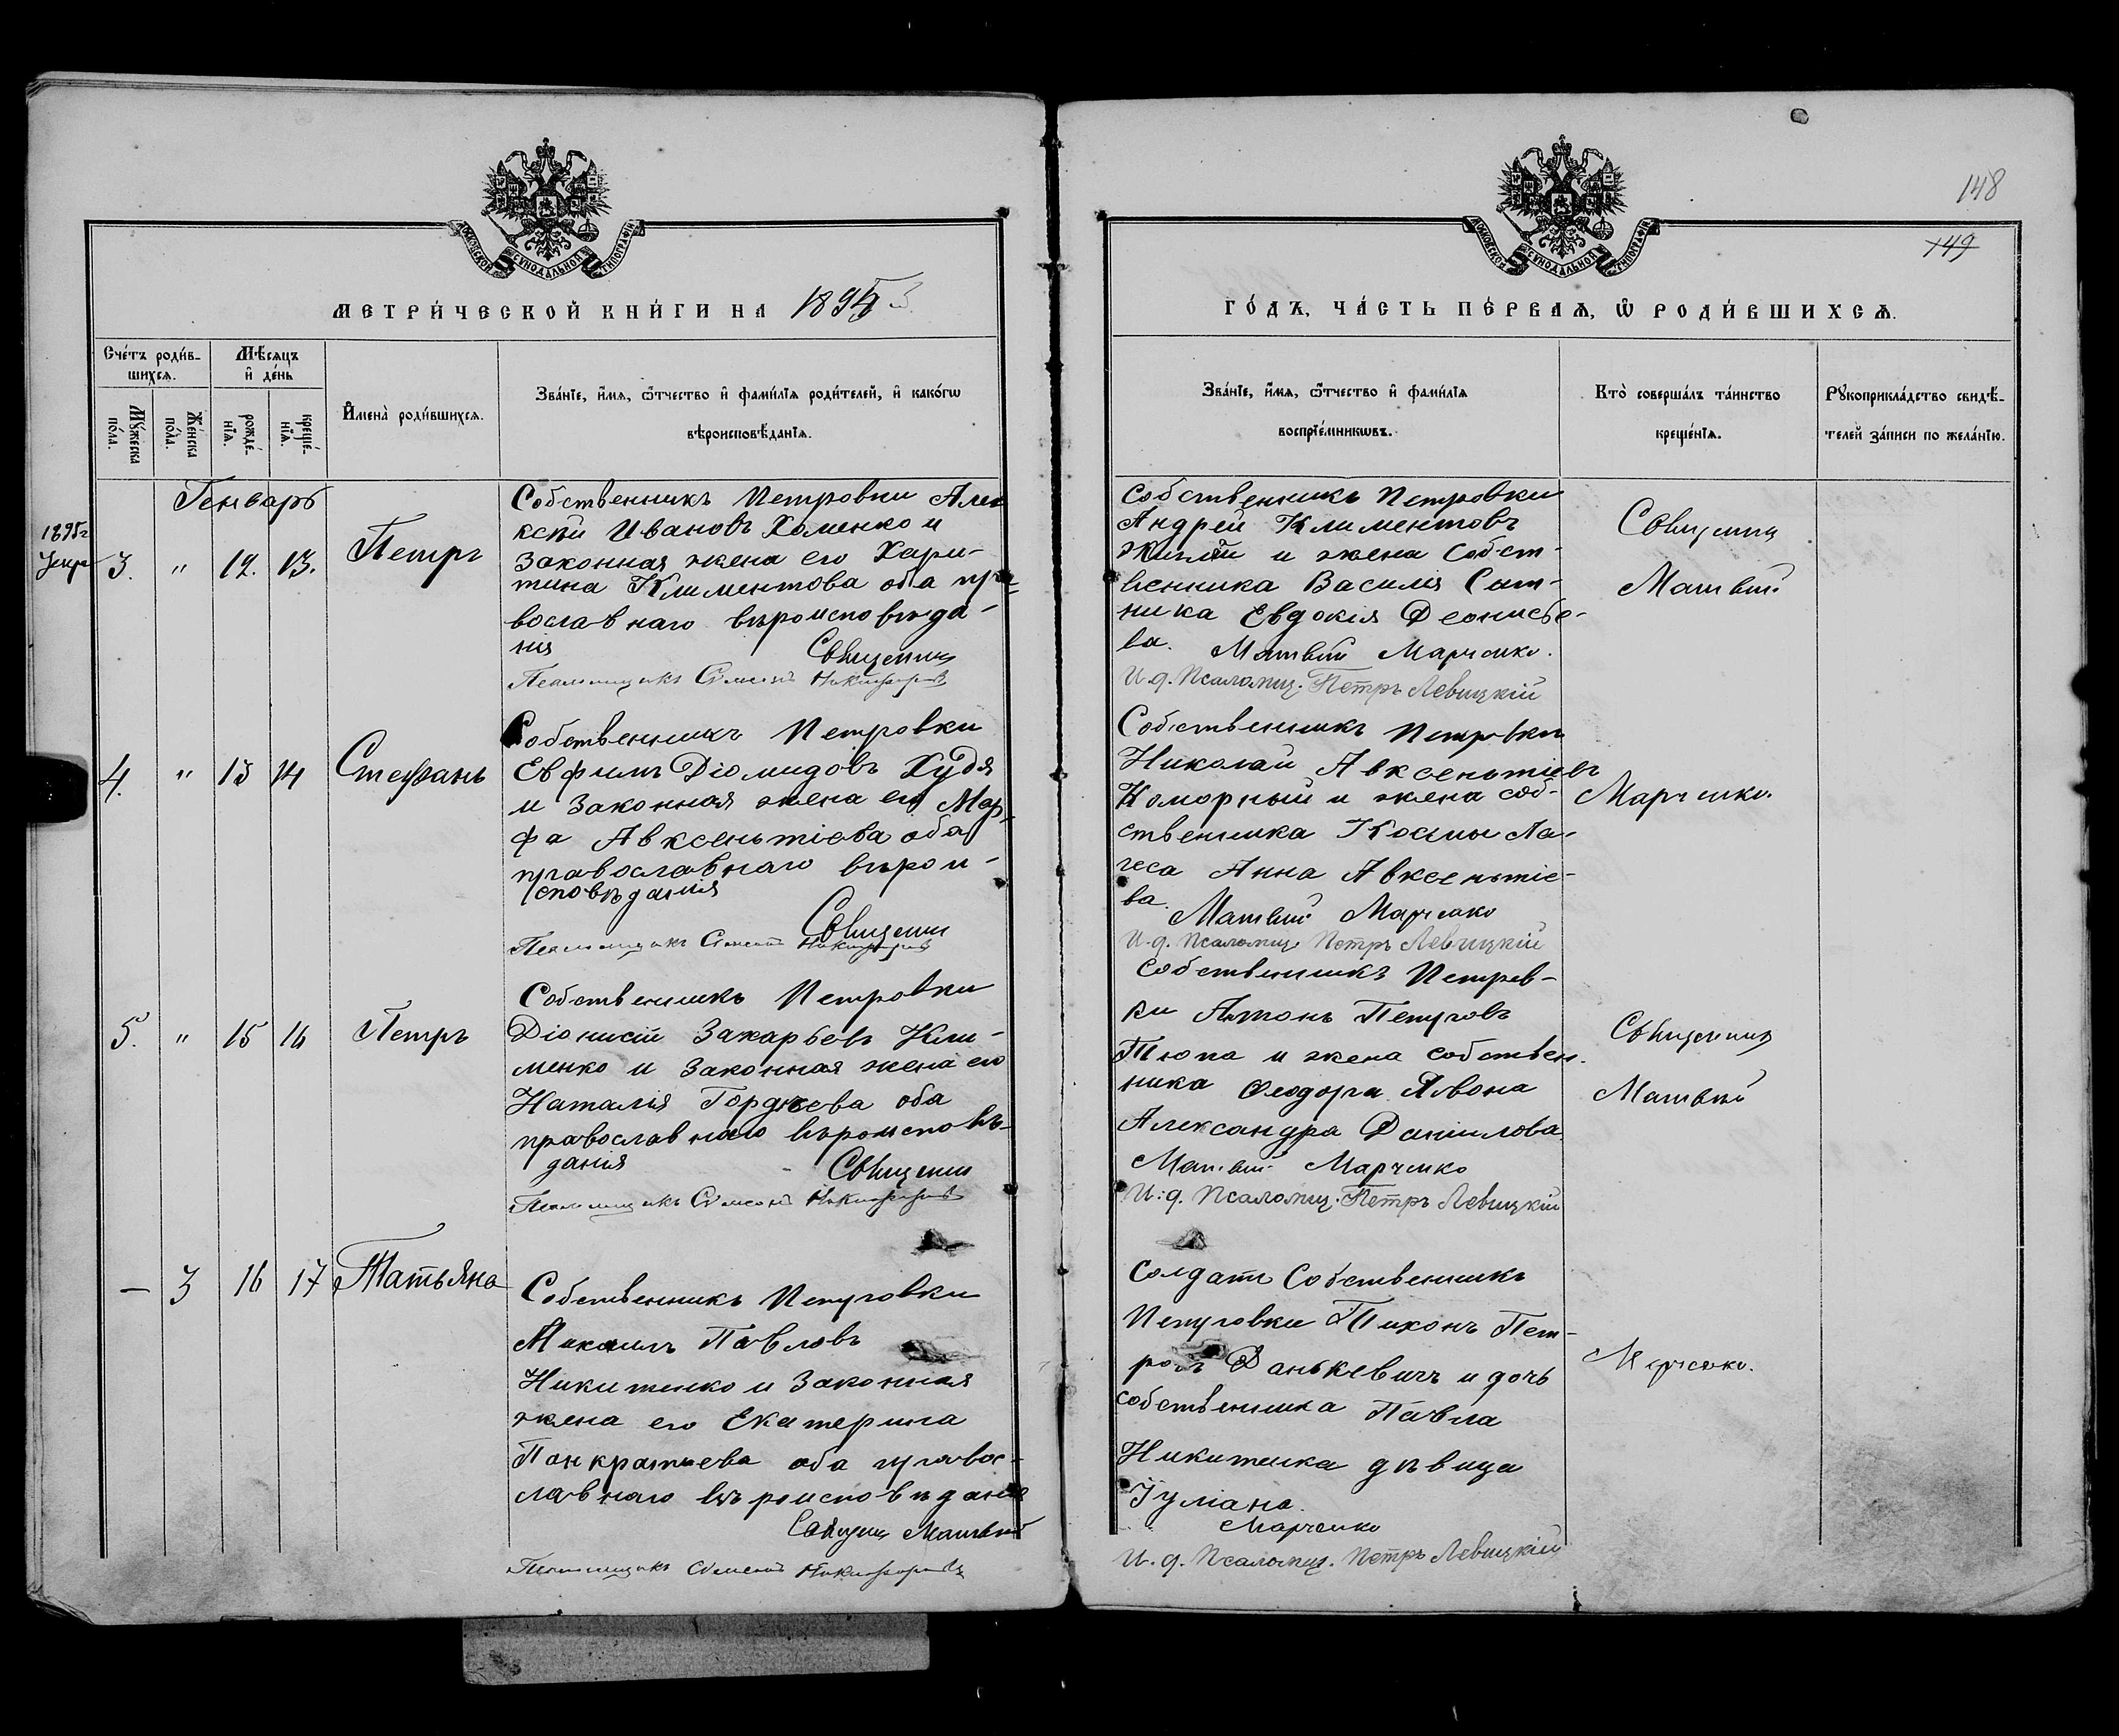 148
149
МОСКОВСКОЙ СѴНОДАЛЬНОЙ ТИПОГРАФІИ
МОСКОВСКОЙ СѴНОДАЛЬНОЙ ТИПОГРАФІИ
МЕТРИ́ЧЕСКОЙ КНИ́ГИ НА 1895
ГО́ДЪ, ЧА́СТЬ ПЕ́РВАѦ, Ѿ РОДИ́ВШИХСѦ.
Сче́тъ роди́в-
шихсѧ.
Мѣ́сѧцъ
и҆ де́нь
Мꙋ́жеска
по́ла.
Же́нска
по́ла.
рожде́-
нїѧ.
креще́-
нїѧ.
И҆мена̀ роди́вшихсѧ.
Зва́нїе, и҆́мѧ, ѻ҆́тчество и҆ фами́лїѧ роди́телей, и҆ како́гѡ
вѣроисповѣ́данїѧ.
Зва́нїе, и҆́мѧ, ѻ҆́тчество и҆ фами́лїѧ
воспрїе́мникѡвъ.
Кто̀ соверша́лъ та́инство
креще́нїѧ.
Рꙋкоприкла́дство свидѣ́-
телей за́писи по жела́нїю.
Генварь
1895г
3. " 12. 13. Петръ
Собственникъ Петровки Але
ксѣй Ивановъ Хоменко и
законная жена его Хари-
тина Климентова оба пра-
вославнаго вѣроисповѣда-
нія
Священник
Псаломщикъ Симеонъ Никифоровъ
Собственникъ Петровки
Андрей Климентовъ
и жена собст-
венника Василія Сит-
ника Евдокія Деонисье-
ва. Матвѣй Марченко.
И. д. Псаломщ. Петръ Левицкій
Священник
Матвѣй
4. " 13 14 Стефанъ
Собственникъ Петровки
Евфимъ Діомидовъ Худя
и законная жена его Мар-
фа Авксентіева оба
православнаго вѣрои-
сповѣданія
Священник
Псаломщикъ Симеонъ Никифоровъ
Собственникъ Петровки
Николай Авксентіевъ
Коморный и жена соб-
ственника Косьмы Ла-
геса Анна Авксентіе-
ва.
Матвѣй Марченко
И. д. Псаломщ. Петръ Левицкій
Марченко.
5. " 15 16 Петръ
Собственникъ Петровки
Діонисій Захарьевъ Кли-
менко и законная жена его
Наталія Гордѣева оба
православнаго вѣроисповѣ-
данія
Священник
Псаломщикъ Симеонъ Никифоровъ
Собственникъ Петров-
ки Антонъ Петровъ
Тюпа и жена собствен-
ника Ѳеодора
Александра Данилова
Матвѣй Марченко
И. д. Псаломщ. Петръ Левицкій
Священник
Матвѣй
— 3 16 17 Татьяна
Собственникъ Петровки
Михаилъ Павловъ
Никитенко и законная
жена его Екатерина
Панкратіева оба правос-
лавнаго вѣроисповѣданія
Священ Матвѣй
Псаломщикъ Симеонъ Никифоровъ
Солдатъ Собственникъ
Петровки Тихонъ Пет-
ровъ Данькевичъ и дочь
собственника Павла
Никитенка дѣвица
Іуліана.
Марченко
И. д. Псаломщ. Петръ Левицкій
Марченко.